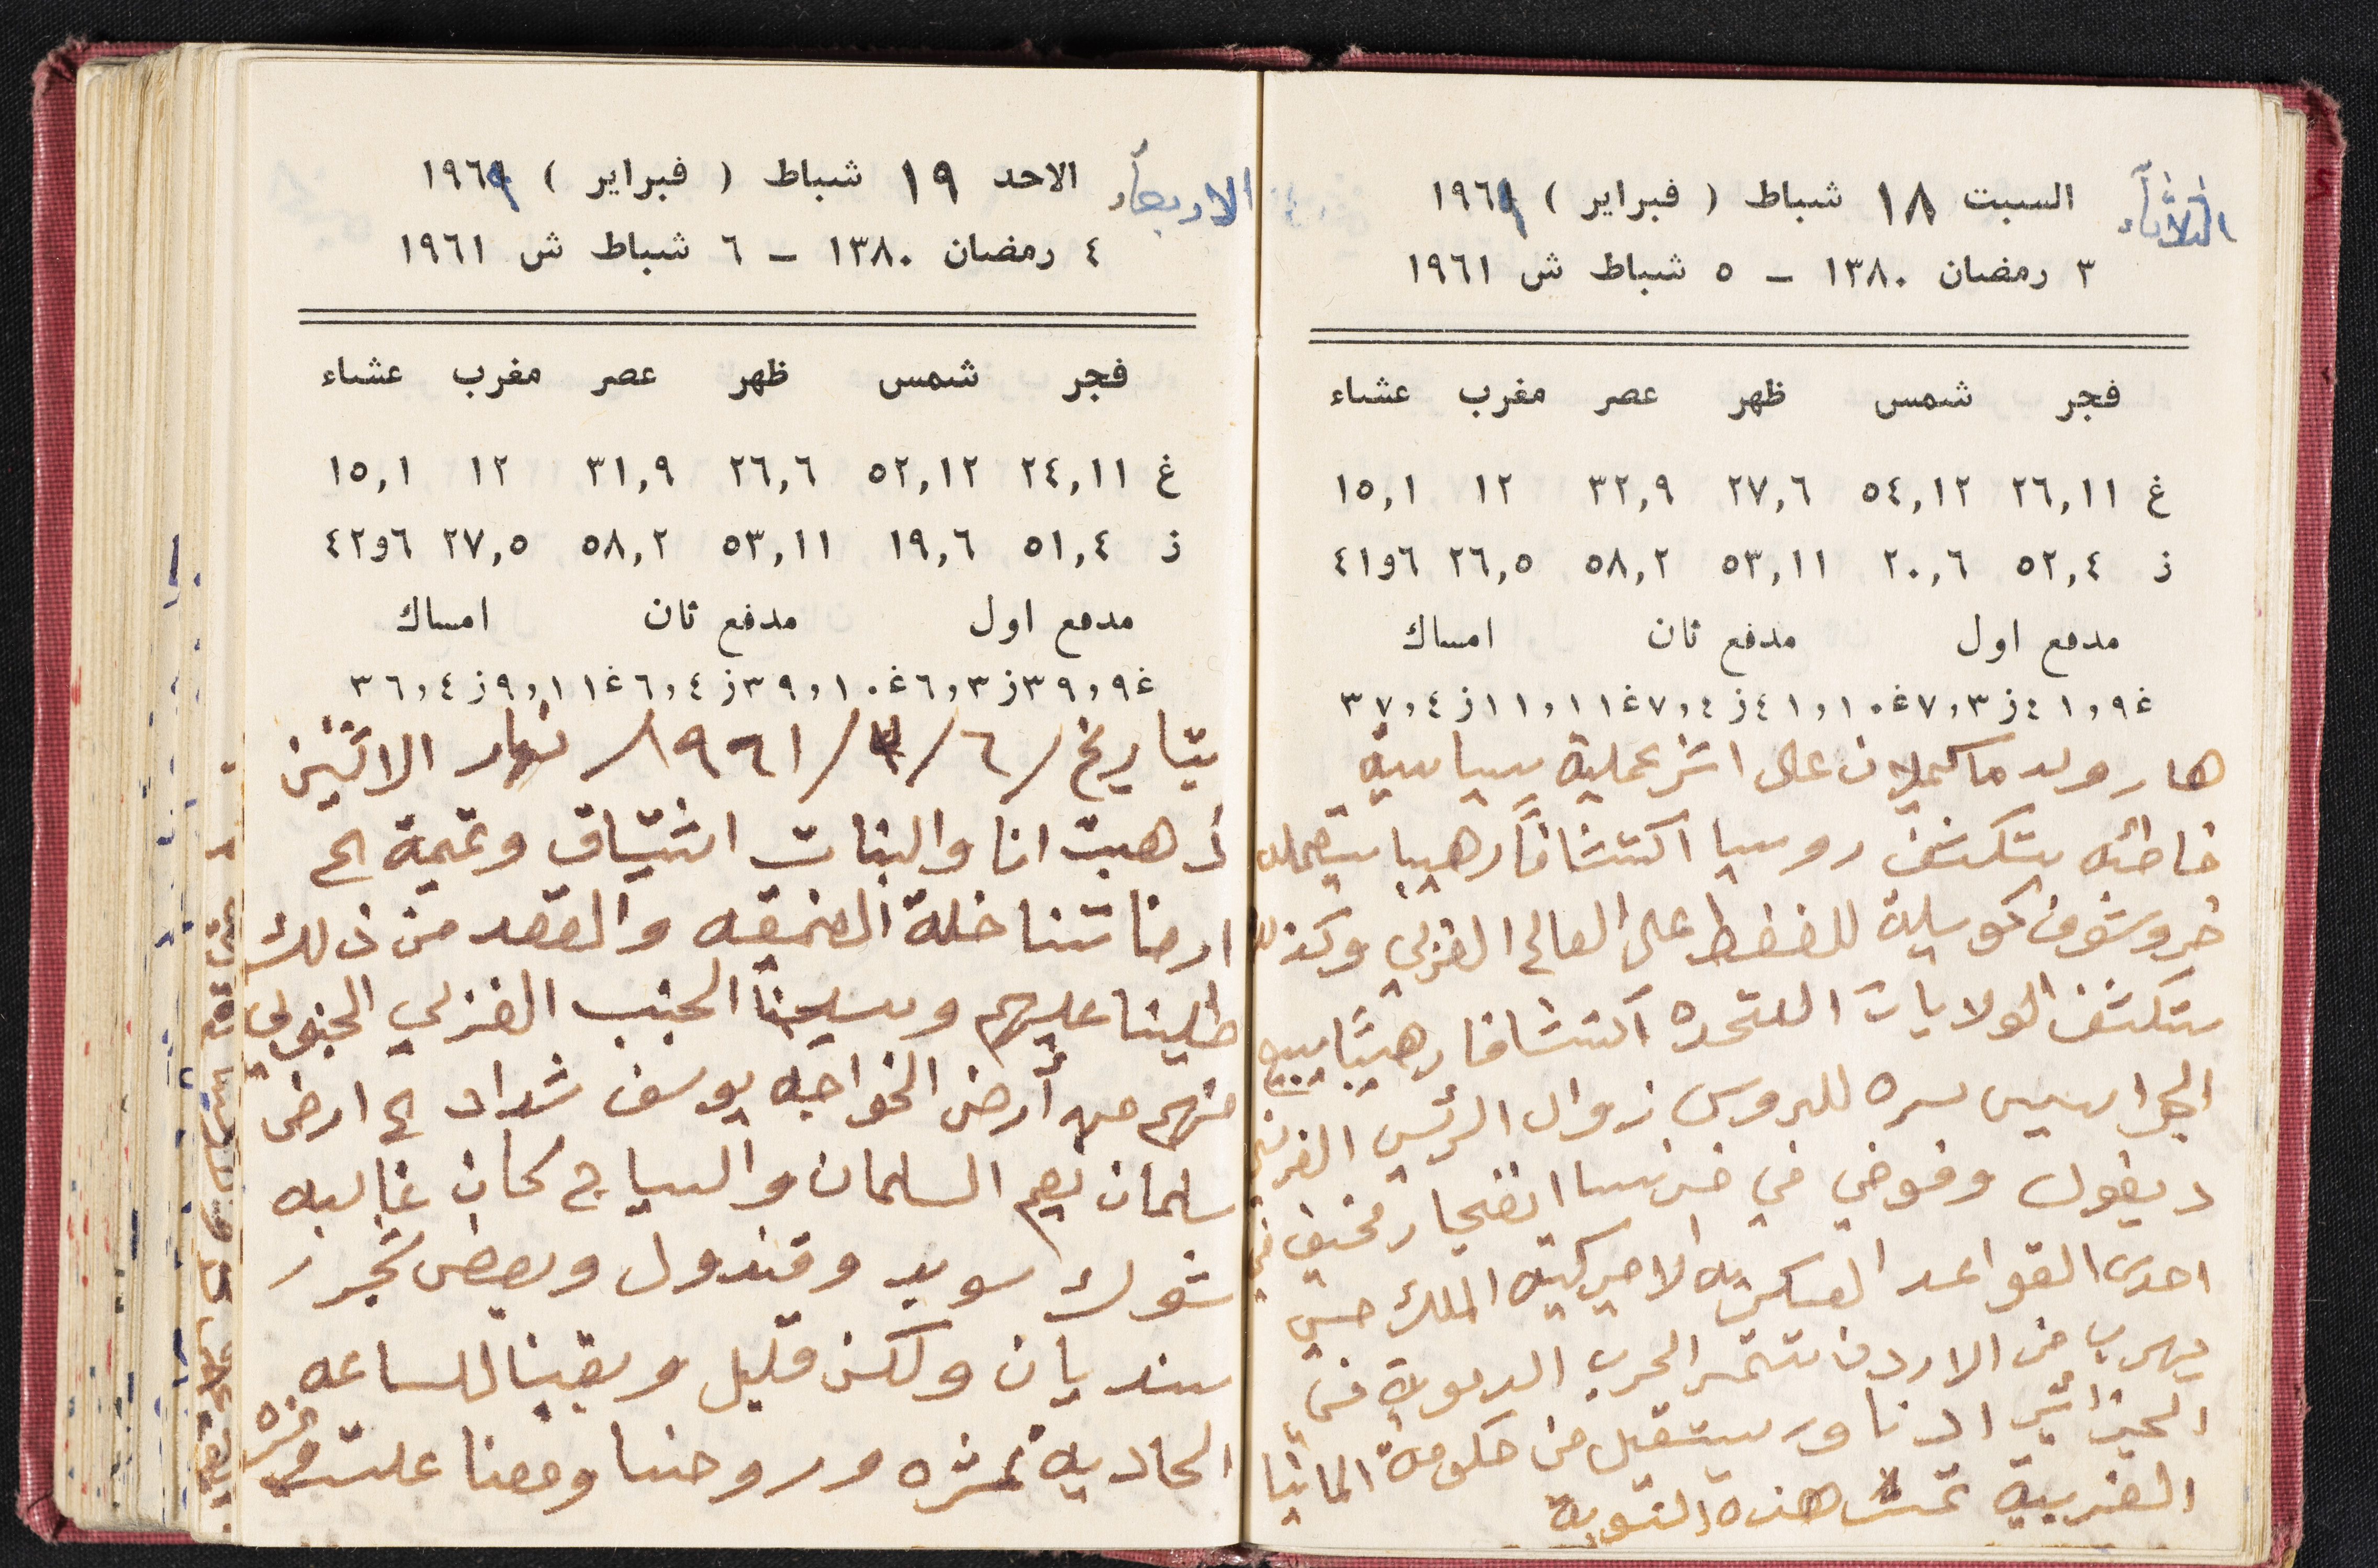 الثلاثاء
السبت ١٨ شباط ( فبراير ) ١٩٦١
٣ رمضان ١٣٨٠ – ٥ شباط ش ١٩٦١
فجر شمس ظهر عصر مغرب عشاء
غ ٢٦,١١ ٥٤,١٢ ٢٧,٦ ٣٢,٩ ١٢ ١٥,١
ز ٥٢,٤ ٢٠,٦ ٥٣,١١ ٥٨,٢ ٢٦,٥ ٦و٤١
مدفع اول مدفع ثان امساك
غ٩,٤١ز٧,٣غ٤١,١٠ز٧,٤غ١١,١١ز٣٧,٤
هارولد ماكميلان على اثر عملية سياسية
خاطئه ستكشف روسيا اكتشافاً رهيبا يستعمله
خروشوف كوسيلة للضغط على العالم الغربي وكذلك
ستكشف الولايات المتحده اكتشافا رهيباً يبيع
الجواسيس سره للروس زوال الرئيس الفرنسي
ديغول وفوضى في فرنسا انفجار مخيف في
احدى القواعد العسكريه الاميركيه الملك حسين
يهرب من الاردن تستمر الحرب الدموية في
الجزائر ادناور يستقيل من حكومة المانيا
الغربية تمت هذه التنويه
الاربعاء
الاحد ١٩ شباط ( فبراير ) ١٩٦٩
٤ رمضان ١٣٨٠ – ٦ شباط ش ١٩٦١
فجر شمس ظهر عصر مغرب عشاء
غ ٢٤,١١ ٥٢,١٢ ٢٦,٦ ٣١,٩ ١٢ ١٥,١
ز ٥١,٤ ١٩,٦ ٥٣,١١ ٥٨,٢ ٢٧,٥ ٦و٤٢
مدفع اول مدفع ثان امساك
غ٩,٣٩ز٦,٣غ٣٩,١٠ز٦,٤غ٩,١١ز٣٦,٤
بتاريخ /٦/٣/١٩٦١/ نهار الاثنين
ذهبت انا والبنات اشتياق وتميمة الى
ارضاتنا خلة والقصد من ذلك
طلينا عليهم وسيجنا الجنب الغربي الجنوبي
منهم من أرض الخواجه يوسف شداد الى ارض
سلمان نعيم السلمان والسياج كان غالبه
شوك سويد وقندول وبعض شجر
سنديان ولكن قليل وبقينا للساعه
الحادية عشره وروحنا ومعنا علت وفره